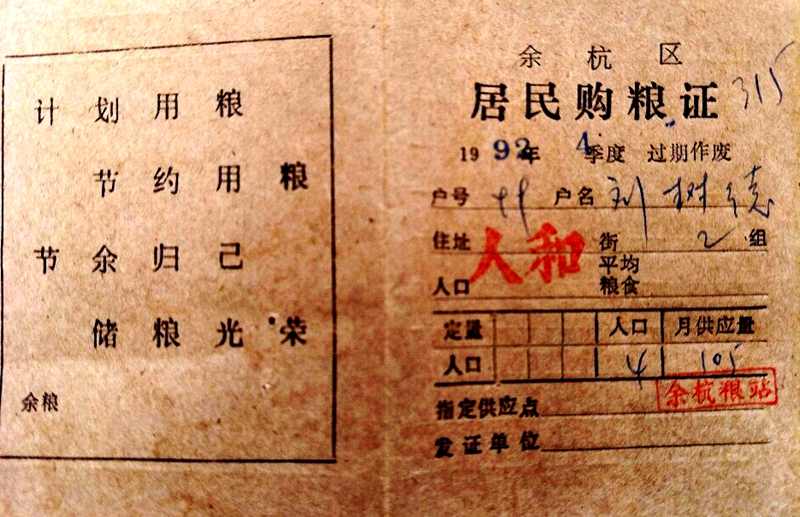 计划用粮
节约用粮
节余归己
储粮光荣
余粮
余杭区
居民购粮证
315
1992年 4季度 过期作废
户号 户名 刘树德
住址 人和 街 2 组
人口 平均粮食
定量 人口 月供应量
人口 4 105
余杭粮站
指定供应点
发证单位